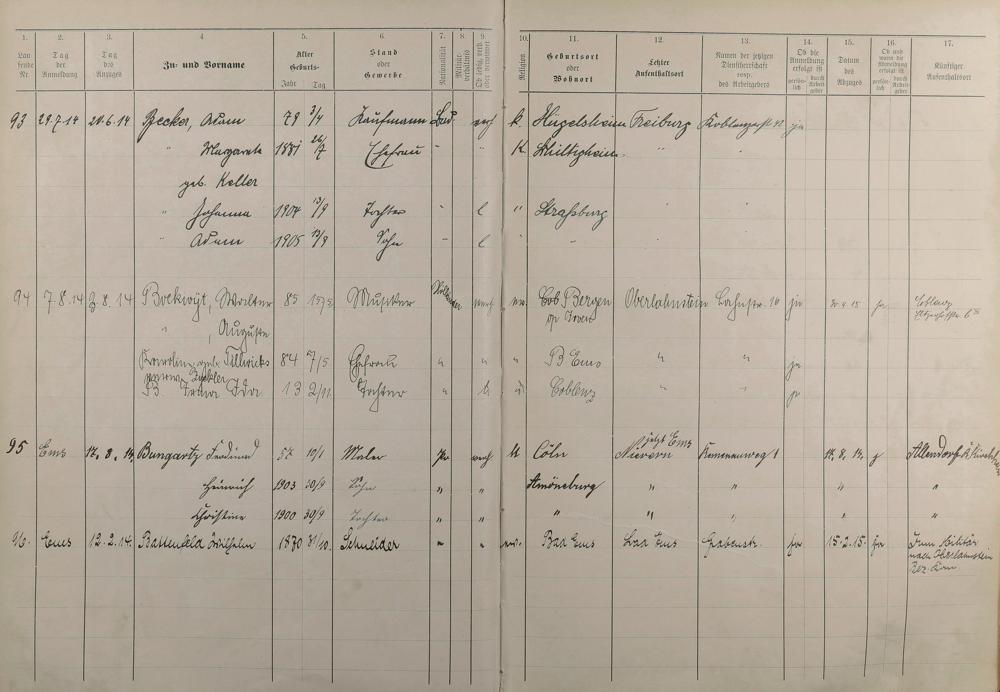 1. 2. 3. 4 5. 6. 7. 8. 9. 10. 11. 12. 13. 14. 15. 16. 17.
Laufende Nr. Tag der Anmeldung Tag des Anzuges Zu- und Vorname Alter Geburts- Jahr Tag Stand oder Gewerbe Nationalität Militärverhältnis Ob ledig, verh. oder verwitwet Religion Geburtsort oder Wohnort Letzter Aufenthaltsort Namen der jetzigen Dienstherrschaft resp. des Arbeitgebers Ob die Anmeldung erfolgt ist persönlich durch Arbeitgeber Datum des Abzuges Ob und wann die Abmeldung erfolgt ist persönlich durch Arbeitgeber Künftiger Aufenthaltsort
93 29.7.14 20.6.14 Becker, Adam 79 3/4 Kaufmann Bad. verh k. Hügelsheim Freiburg Koblenzerst. 42 ja
" Margareta 1881 26/7 Ehefrau " K. "
geb. Keller
" Johanna 1904 13/9 Tochter " l " Straßburg
" Adam 1905 13/9 Sohn " l "
94 7.8.14 3.8.14 Boekwijt, Walter 85 15/5 Musiker verh ev. Bergen Oberlahnstein Lahnstr. 16 ja ja Coblenz
" , Auguste
Karoline geb. 84 7/5 Ehefrau " " " B Ems " " ja
Ida 13 2/11 Tochter " l Coblenz " " ja
95 Ems 17.8.14. Bungartz Ferdinand 57 10/1 Maler Pr verh k Cöln jetzt Ems Nievern Kemmenauweg 1 17.8.14. j Allendorf
Heinrich 1903 30/9 Sohn " " Amöneburg " " " "
Christine 1900 30/9 Tochter " " " " " " "
96. Ems 12.2.14. Battenfeld Wilhelm 1870 31/10. Schneider " " ev. Bad Ems Bad Ems Grabenstr. ja 15.2.15. ja Zum Militär
nach Oberlahnstein